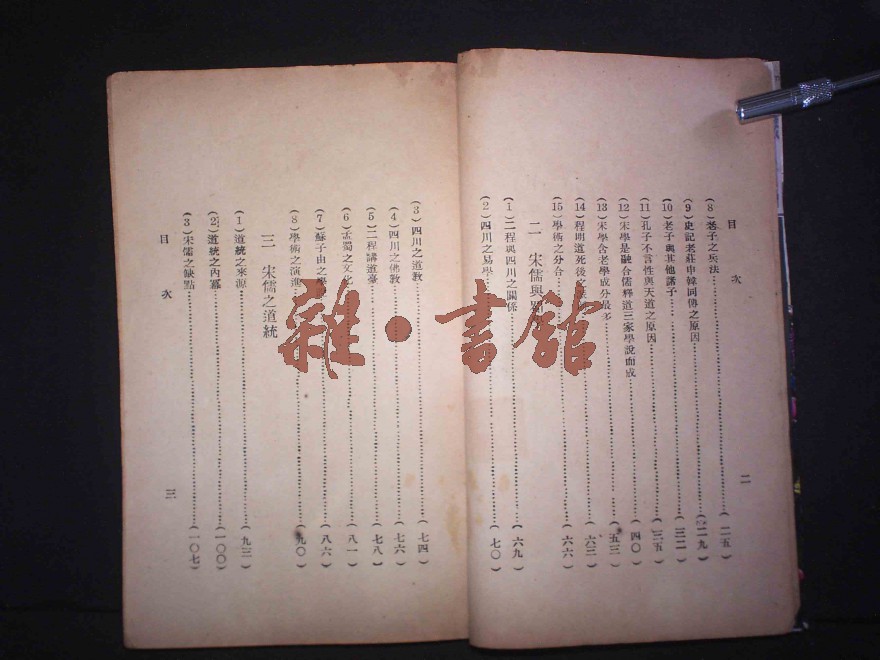 目次
（8）老子之兵法……（二五）
（9）史記老莊申韓同傳之原因……（二九）
（10）老子與其他諸子……（三二）
（11）孔子不言性與天道之原因……（三五）
（12）宋學是融合儒釋道三家學說而成……（四〇）
（13）宋學含老學成分最多……（五三）
（14）程明道死後之……（六三）
（15）學術之分合……（六六）
二 宋儒與
（1）二程與四川之關係……（六九）
（2）四川之易學……（七〇）
二
（3）四川之道教……（七四）
（4）四川之佛教……（七六）
（5）二程講道臺……（七八）
（6）孟蜀之文化……（八一）
（7）蘇子由之學……（八六）
（8）學術之演進……（九〇）
三 宋儒之道統
（1）道統之來源……（九三）
（2）道統之內幕……（一〇〇）
（3）宋儒之缺點……（一〇七）
目次
三
雜·書館